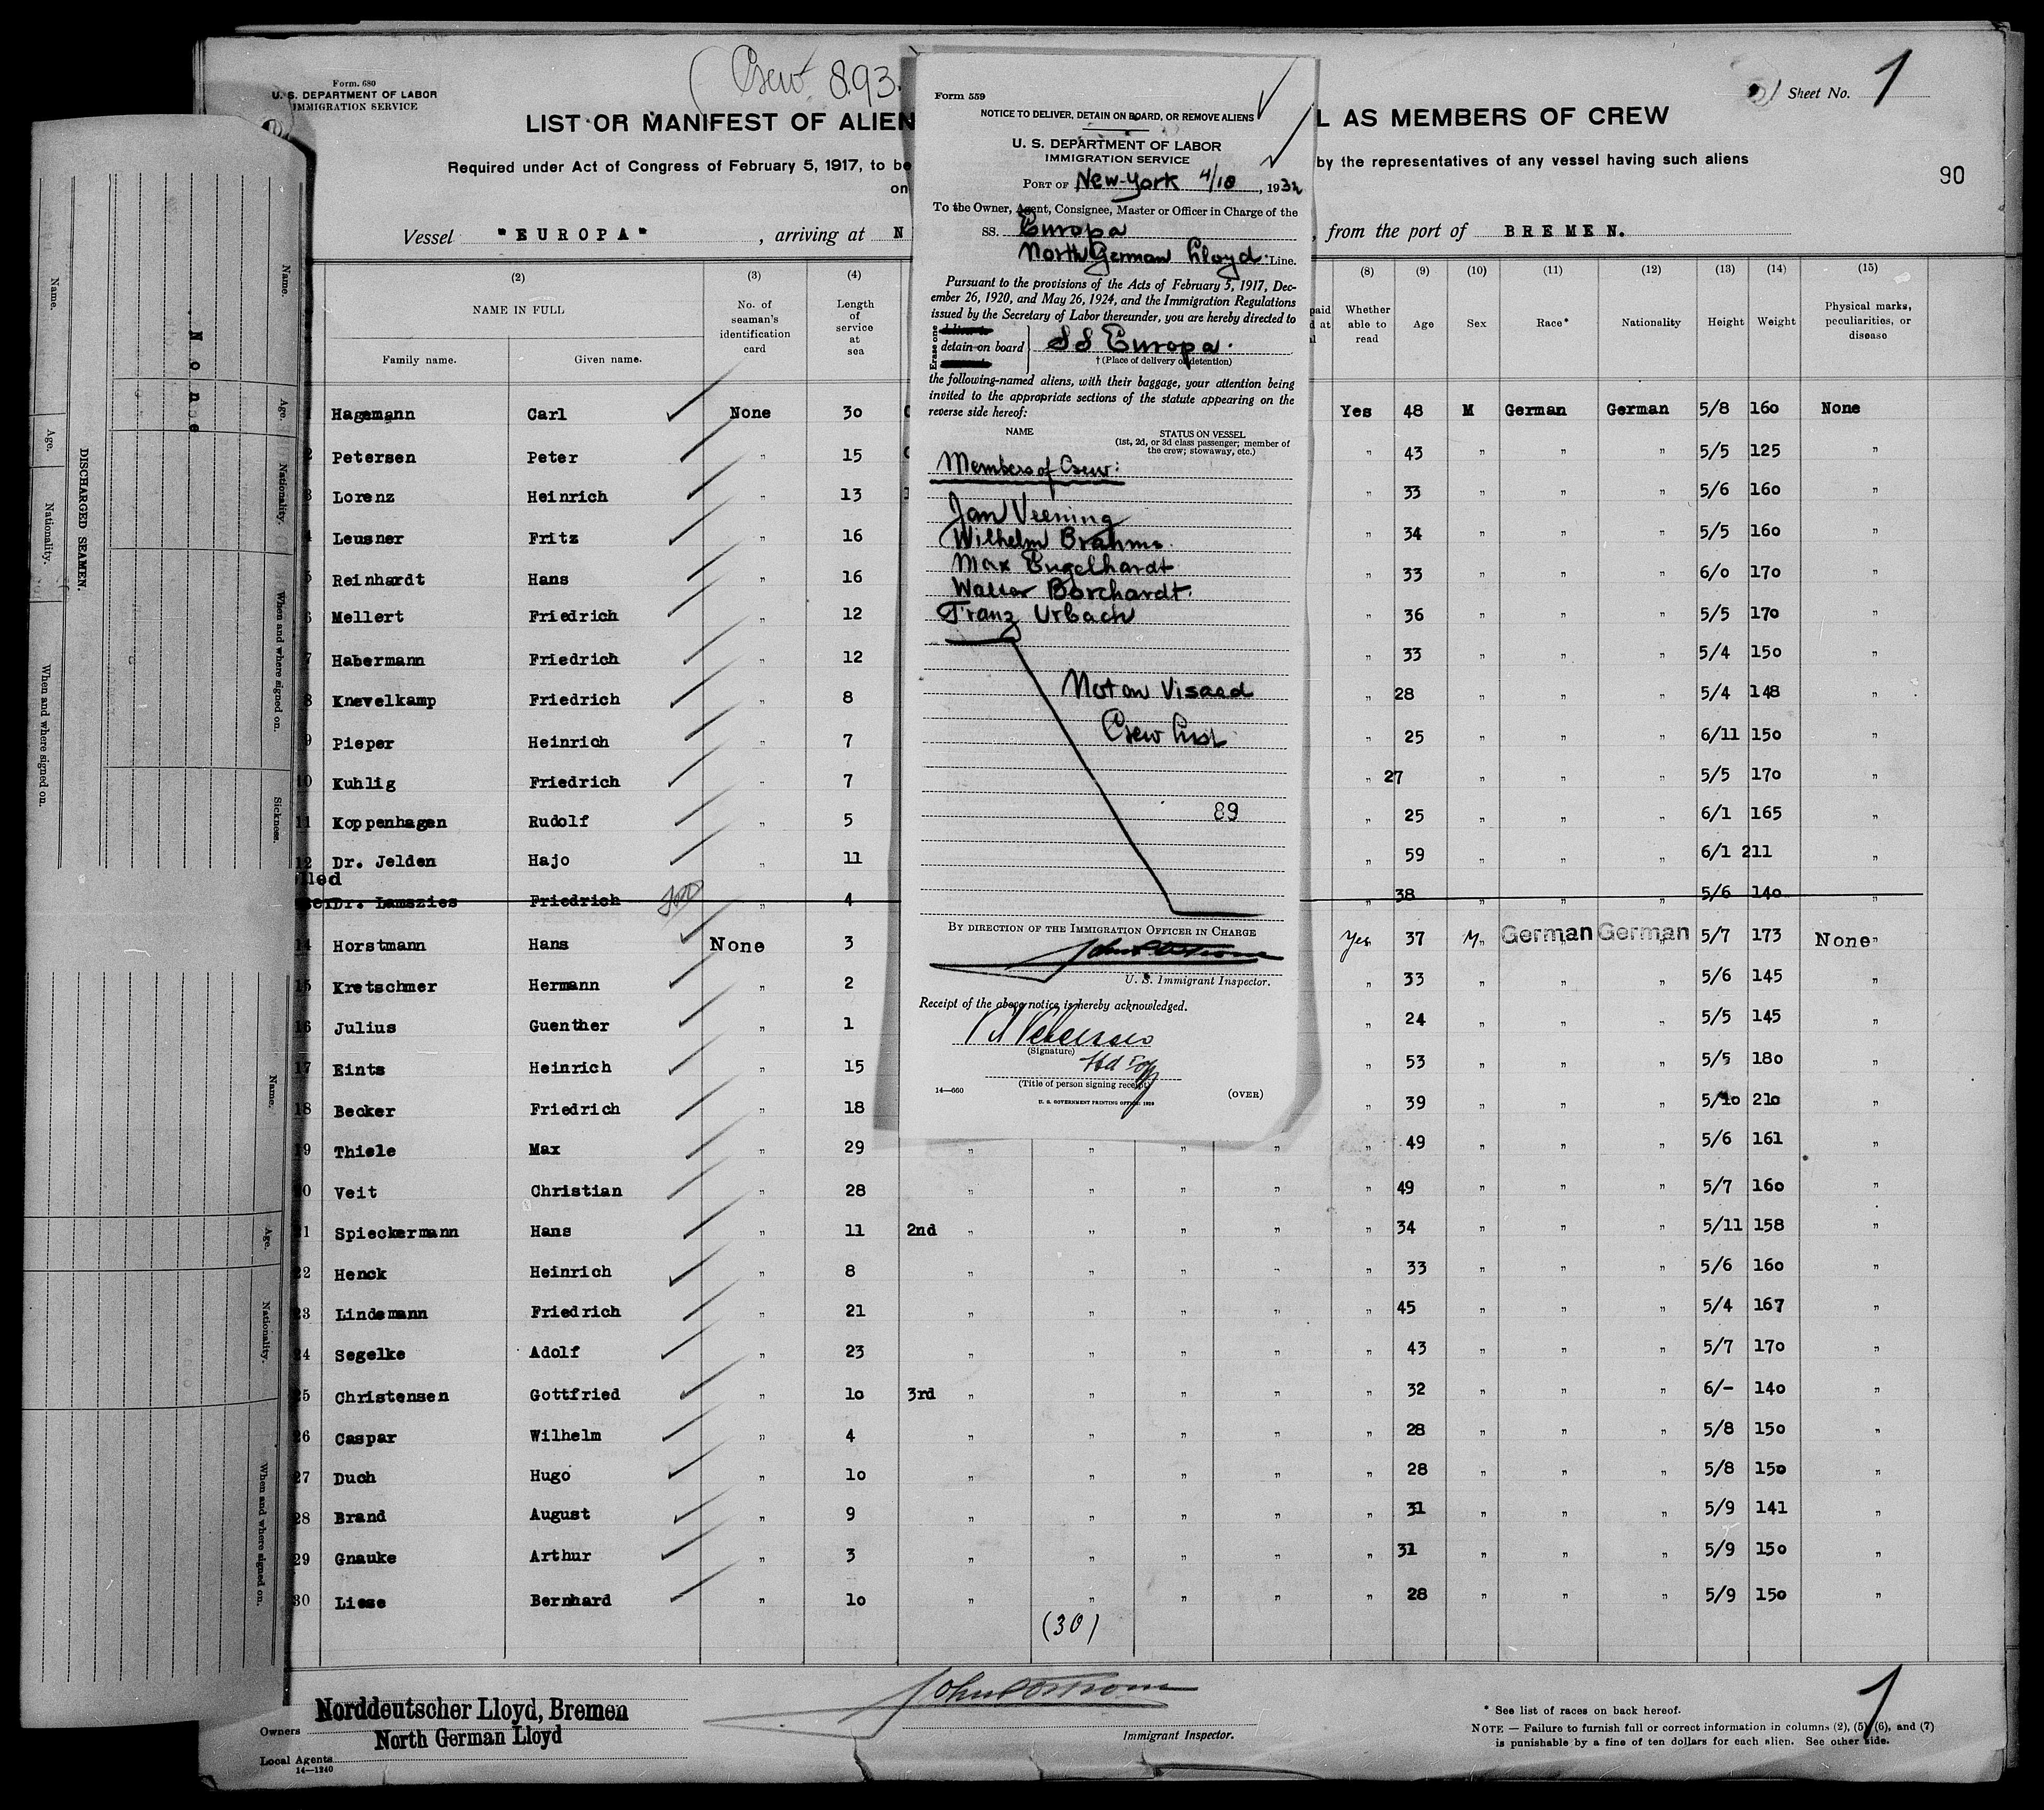 Form. 680
U. S. DEPARTMENT OF LABOR
IMMIGRATION SERVICE
Crew 893
Sheet No. 1
LIST OR MANIFEST OF ALIEN
L AS MEMBERS OF CREW
Required under Act of Congress of February 5, 1917, to be
by the representatives of any vessel having such aliens
on
90
Vessel "EUROPA", arriving at N
, from the port of BREMEN.
(2) (3) (4) (8) (9) (10) (11) (12) (13) (14) (15)
NAME IN FULL
Family name. Given name.
No. of seaman's identification card
Length of service at sea
Whether able to read
Age
Sex
Race*
Nationality
Height
Weight
Physical marks, peculiarities, or disease
Hagemann Carl None 30 Yes 48 M German German 5/8 160 None
2 Petersen Peter " 15 " 43 " " " 5/5 125 "
3 Lorenz Heinrich " 13 " 33 " " " 5/6 160 "
4 Leusner Fritz " 16 " 34 " " " 5/5 160 "
5 Reinhardt Hans " 16 " 33 " " " 6/0 170 "
6 Mellert Friedrich " 12 " 36 " " " 5/5 170 "
7 Habermann Friedrich " 12 " 33 " " " 5/4 150 "
8 Knevelkamp Friedrich " 8 " 28 " " " 5/4 148 "
9 Pieper Heinrich " 7 " 25 " " " 6/11 150 "
10 Kuhlig Friedrich " 7 " 27 " " " 5/5 170 "
11 Koppenhagen Rudolf " 5 " 25 " " " 6/1 165 "
12 Dr. Jelden Hajo " 11 " 59 " " " 6/1 211 "
Dr. Lamszies Friedrich " 4 " 38 " " " 5/6 140 "
14 Horstmann Hans None 3 Yes 37 M German German 5/7 173 None
15 Kretschmer Hermann " 2 " 33 " " " 5/6 145 "
16 Julius Guenther " 1 " 24 " " " 5/5 145 "
17 Eints Heinrich " 15 " 53 " " " 5/5 180 "
18 Becker Friedrich " 18 " 39 " " " 5/10 210 "
19 Thiele Max " 29 " " " " " 49 " " " 5/6 161 "
20 Veit Christian " 28 " " " " " 49 " " " 5/7 160 "
21 Spieckermann Hans " 11 2nd " " " " " 34 " " " 5/11 158 "
22 Henck Heinrich " 8 " " " " " 33 " " " 5/6 160 "
23 Lindemann Friedrich " 21 " " " " " 45 " " " 5/4 167 "
24 Segelke Adolf " 23 " " " " " 43 " " " 5/7 170 "
25 Christensen Gottfried " 10 3rd " " " " " 32 " " " 6/- 140 "
26 Caspar Wilhelm " 4 " " " " " 28 " " " 5/8 150 "
27 Duch Hugo " 10 " " " " " 28 " " " 5/8 150 "
28 Brand August " 9 " " " " " 31 " " " 5/9 141 "
29 Gnauke Arthur " 3 " " " " " 31 " " " 5/9 150 "
30 Liese Bernhard " 10 " " " " " 28 " " " 5/9 150 "
(30)
Owners Norddeutscher Lloyd, Bremen
North German Lloyd
Local Agents
14—1240
Immigrant Inspector.
* See list of races on back hereof.
NOTE — Failure to furnish full or correct information in columns (2), (5), (6), and (7)
is punishable by a fine of ten dollars for each alien. See other side.
1
Form 559
NOTICE TO DELIVER, DETAIN ON BOARD, OR REMOVE ALIENS
U. S. DEPARTMENT OF LABOR
IMMIGRATION SERVICE
PORT OF New-York 4/18, 1932
To the Owner, Agent, Consignee, Master or Officer in Charge of the
SS. Europa
North German Lloyd Line.
Pursuant to the provisions of the Acts of February 5, 1917, Dec-
ember 26, 1920, and May 26, 1924, and the Immigration Regulations
issued by the Secretary of Labor thereunder, you are hereby directed to
Erase one
detain on board
SS Europa.
† (Place of delivery or detention)
the following-named aliens, with their baggage, your attention being
invited to the appropriate sections of the statute appearing on the
reverse side hereof:
NAME
STATUS ON VESSEL
(1st, 2d, or 3d class passenger; member of
the crew; stowaway, etc.)
Members of Crew:
Jan Veening
Wilhelm Brahms
Max Engelhardt
Walter Borchardt
Franz Urbach
Not on Visaed
Crew List
89
BY DIRECTION OF THE IMMIGRATION OFFICER IN CHARGE
U. S. Immigrant Inspector.
Receipt of the above notice is hereby acknowledged.
(Signature)
(Title of person signing receipt)
14—660
U. S. GOVERNMENT PRINTING OFFICE: 1928
(OVER)
DISCHARGED SEAMEN.
Name.
Age.
Nationality.
When and where signed on.
None
Name.
Age.
Nationality.
When and where signed on.
Sickness.
Name.
Age.
Nationality.
When and where signed on.